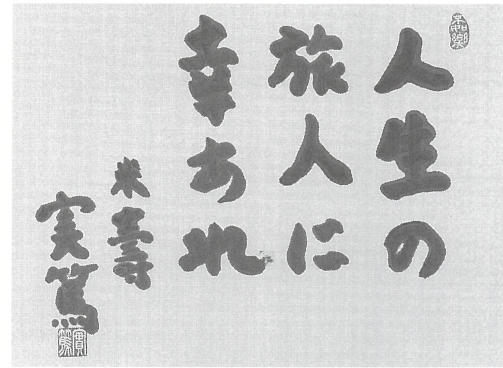 人生の
旅人に
幸あれ
米寿
実篤
實篤